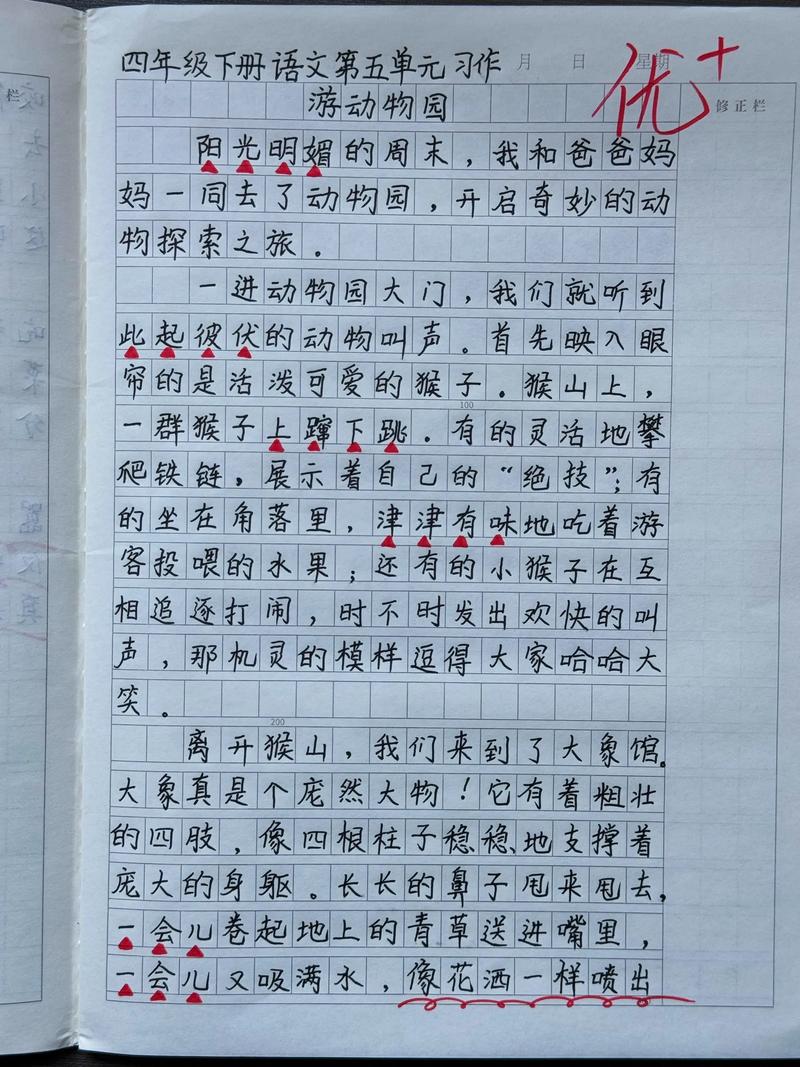 四年级下册语文第五单元习作 月 日 星期
优+
修正栏
栏
游动物园
阳光明媚的周末，我和爸爸妈
妈一同去了动物园，开启奇妙的动
物探索之旅。
一进动物园大门，我们就听到
此起彼伏的动物叫声。首先映入眼
帘的是活泼可爱的猴子。猴山上，
100
一群猴子上蹿下跳。有的灵活地攀
爬铁链，展示着自己的“绝技”；有
的坐在角落里，津津有味地吃着游
客投喂的水果；还有的小猴子在互
相追逐打闹，时不时发出欢快的叫
声，那机灵的模样逗得大家哈哈大
笑。
200
离开猴山，我们来到了大象馆。
大象真是个庞然大物！它有着粗壮
的四肢，像四根柱子稳稳地支撑着
庞大的身躯。长长的鼻子甩来甩去，
一会儿卷起地上的青草送进嘴里，
一会儿又吸满水，像花洒一样喷出